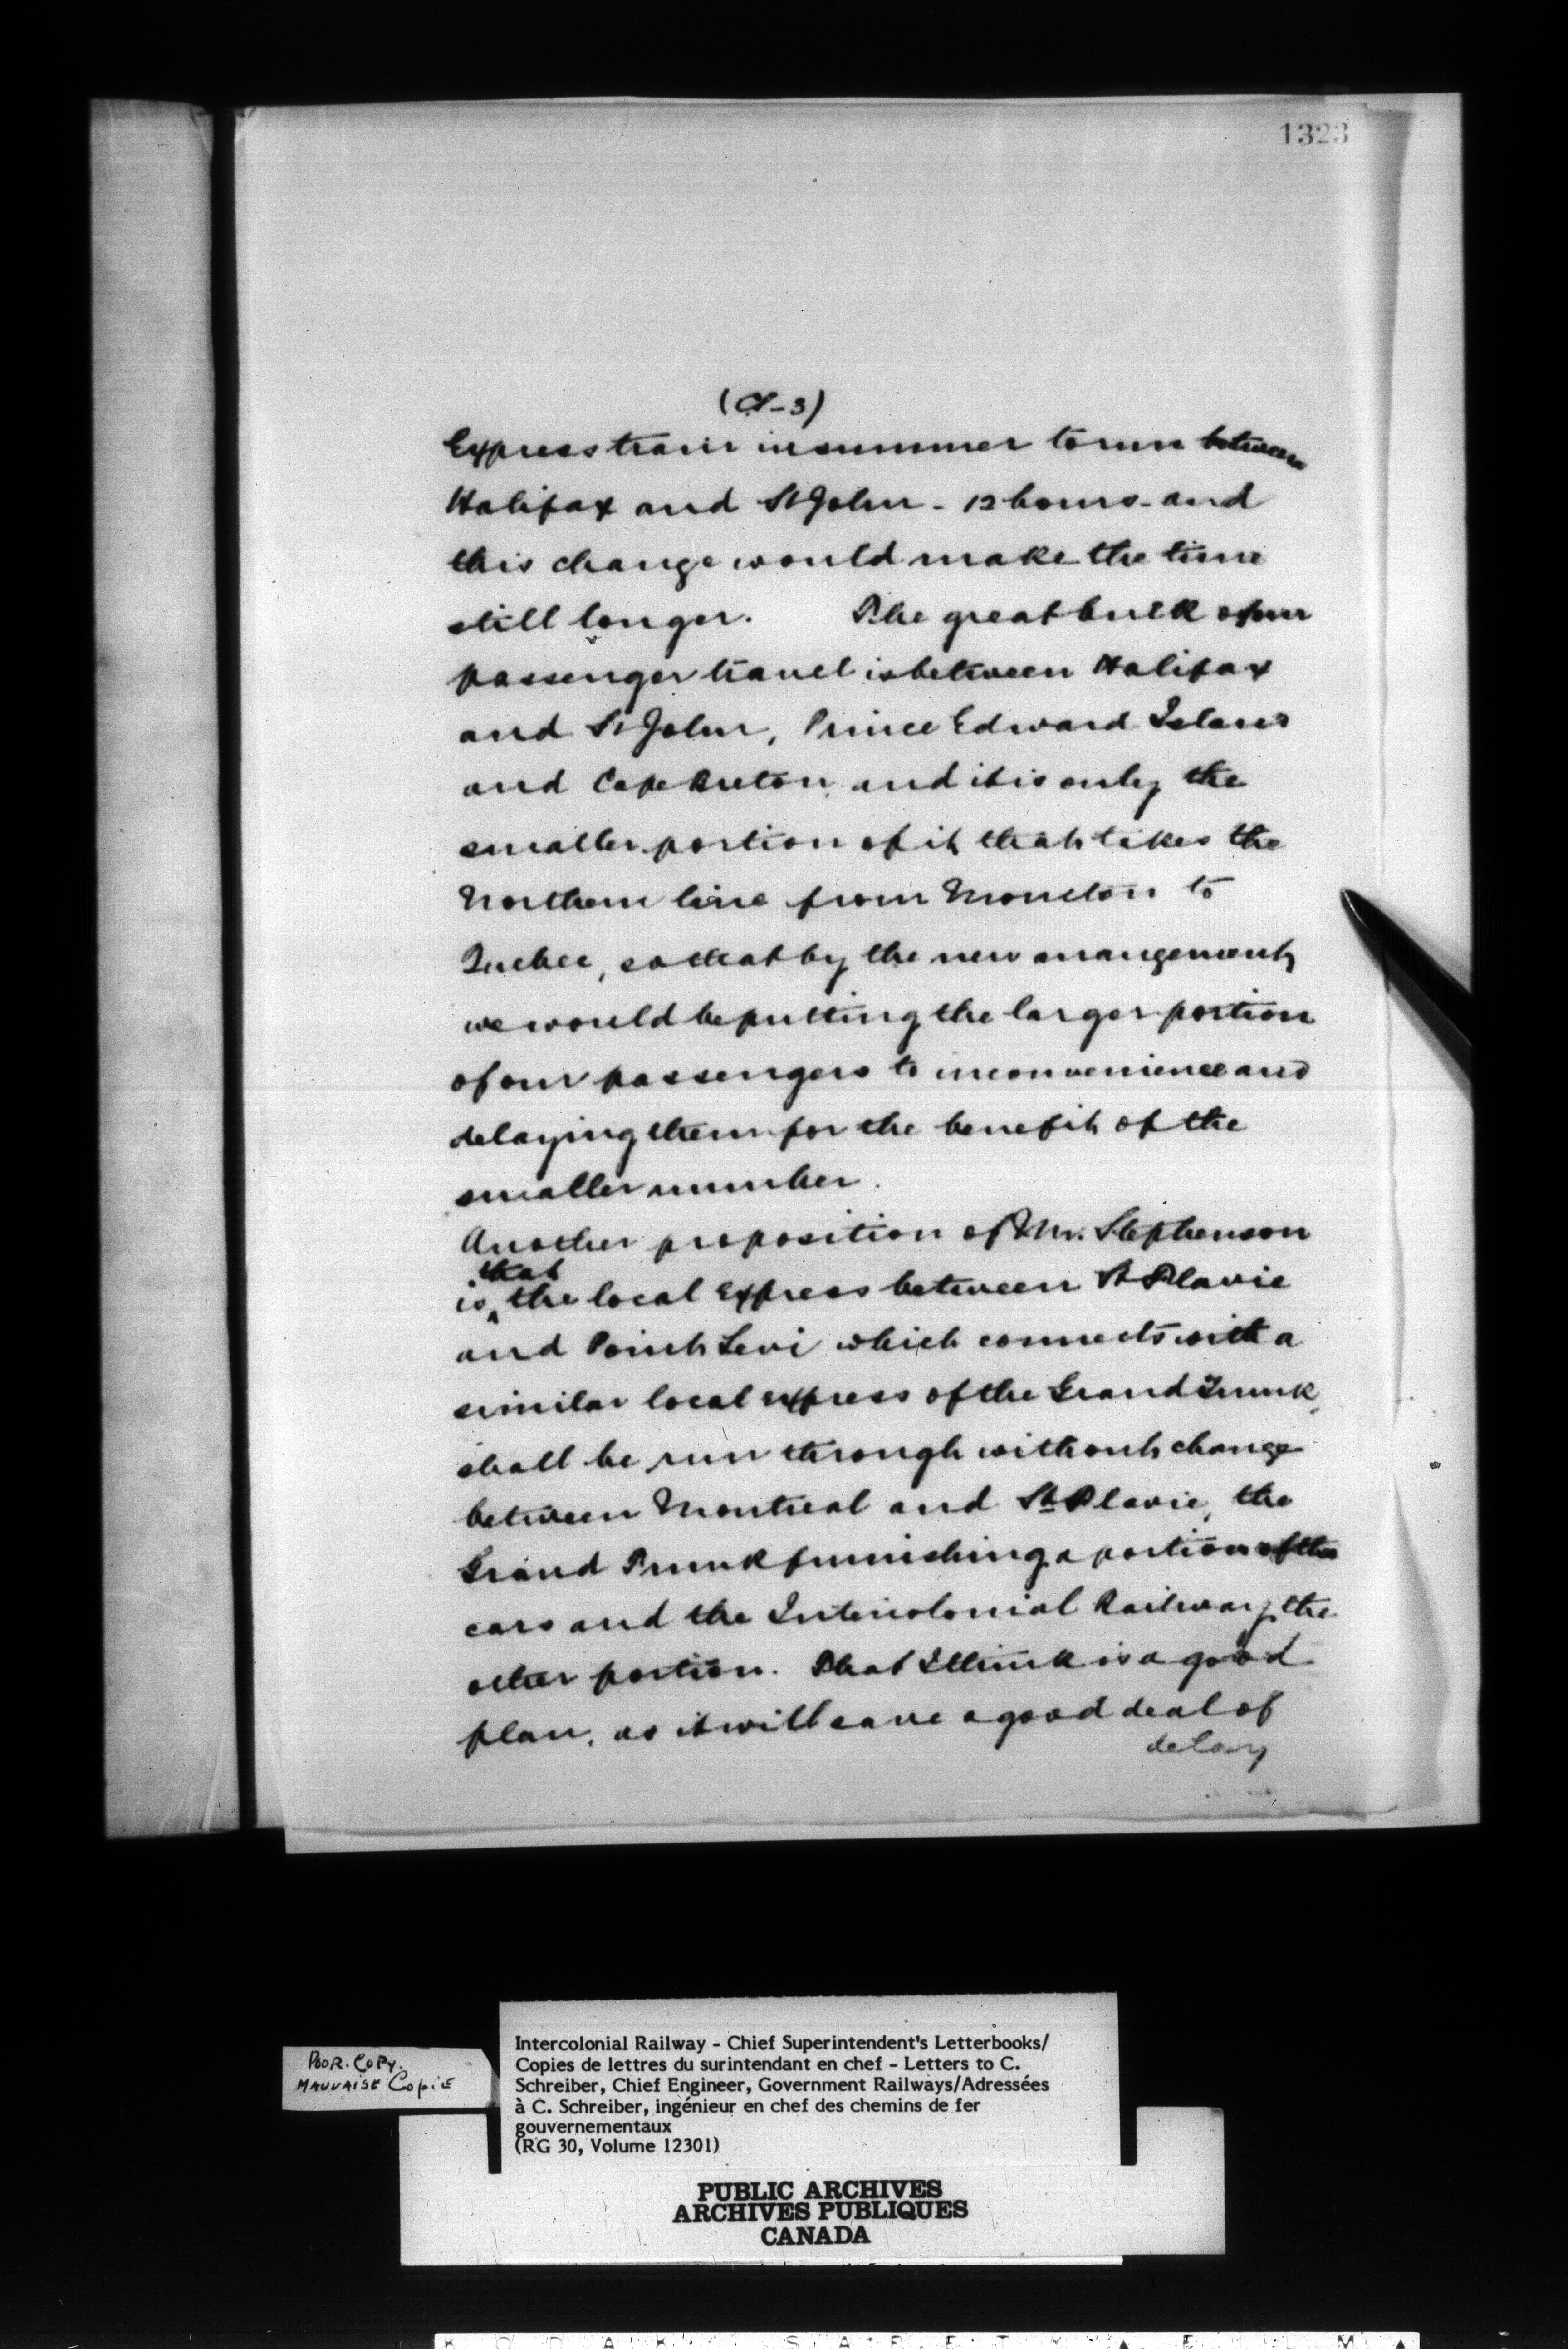 1323
Express train in summer to run between
Halifax and St John - 12 hours - and
this change would make the time
still longer. The great bulk of our
passenger travel is between Halifax
and St John, Prince Edward Island
and Cape Breton, and it is only the
smaller portion of it that takes the
Northern line from Moncton to
Quebec, so that by the new arrangement
we would be putting the larger portion
of our passengers to inconvenience and
delaying them for the benefit of the
smaller number.
Another proposition of Mr. Stephenson
that
is the local express between St Flavie
and Point Levi which connects with a
similar local express of the Grand Trunk,
shall be run through without change
between Montreal and St Flavie, the
Grand Trunk furnishing a portion of the
cars and the Intercolonial Railway the
other portion. That I think is a good
plan, as it will save a good deal of
delay
POOR. COPY.
MAUVAISE COPIE
Intercolonial Railway - Chief Superintendent's Letterbooks/
Copies de lettres du surintendant en chef - Letters to C.
Schreiber, Chief Engineer, Government Railways/Adressées
à C. Schreiber, ingénieur en chef des chemins de fer
gouvernementaux
(RG 30, Volume 12301)
PUBLIC ARCHIVES
ARCHIVES PUBLIQUES
CANADA